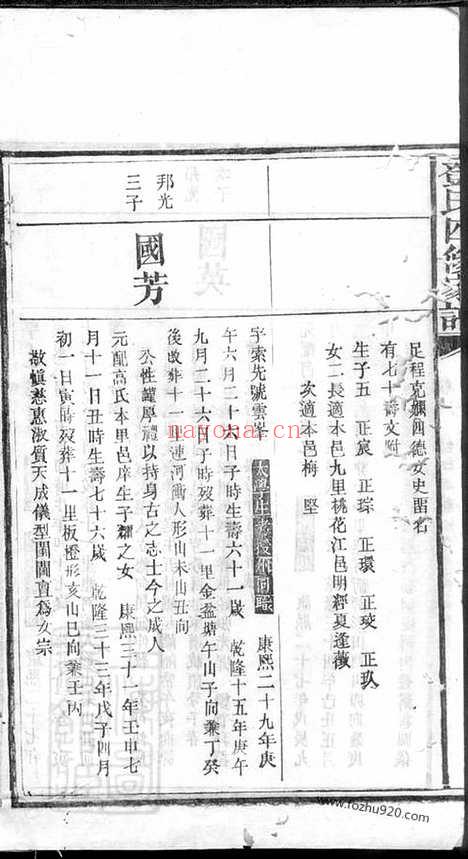 氏四修家譜
足程克嫺四德女史留名
有七十壽文附
生子五 正宸 正琮 正環 正玫 正玖
女二長適本邑九里桃花江邑明經夏逢徵
次適本邑梅堅
邦光
三子
國芳
字索先號雲峯 太學生 康熙二十九年庚
午六月二十六日子時生壽六十一歲 乾隆十五年庚午
九月二十六日子時歿葬十一里金盆塘午山子向兼丁癸
後改葬十一里連河衝人形山未山丑向
公性篤厚禮以持身古之志士今之成人
元配高氏本里邑庠生子耀之女 康熙三十一年壬申七
月十一日丑時生壽七十六歲 乾隆三十三年戊子四月
初一日寅時歿葬十一里板橙形亥山巳向兼壬丙
敬慎慈惠淑質天成儀型閨閫直爲女宗
nayona.cn
www.fozhu920.com